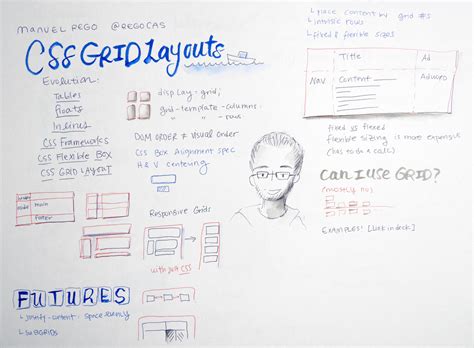 MANUEL REGO @REGOCAS
CSS GRID LAYOUTS
Evolution:
Tables
Floats
Inlines
CSS Frameworks
CSS Flexible Box
CSS GRID LAYOUT
display: grid;
grid-template-columns:
" rows
DOM ORDER ≠ Visual Order
CSS Box Alignment spec
H & V centering
main
footer
Responsive Grids
with just CSS
FUTURES
↳ justify-content: space evenly
↳ SUBGRIDS
↳ place content by grid #s
↳ intrinsic rows
↳ fixed & flexible sizes
Title
Ad
Nav
Content
fixed vs flexed
flexible sizing is more expensive
(has to do a calc)
Can I use GRID?
(mostly no)
EXAMPLES [link in deck]